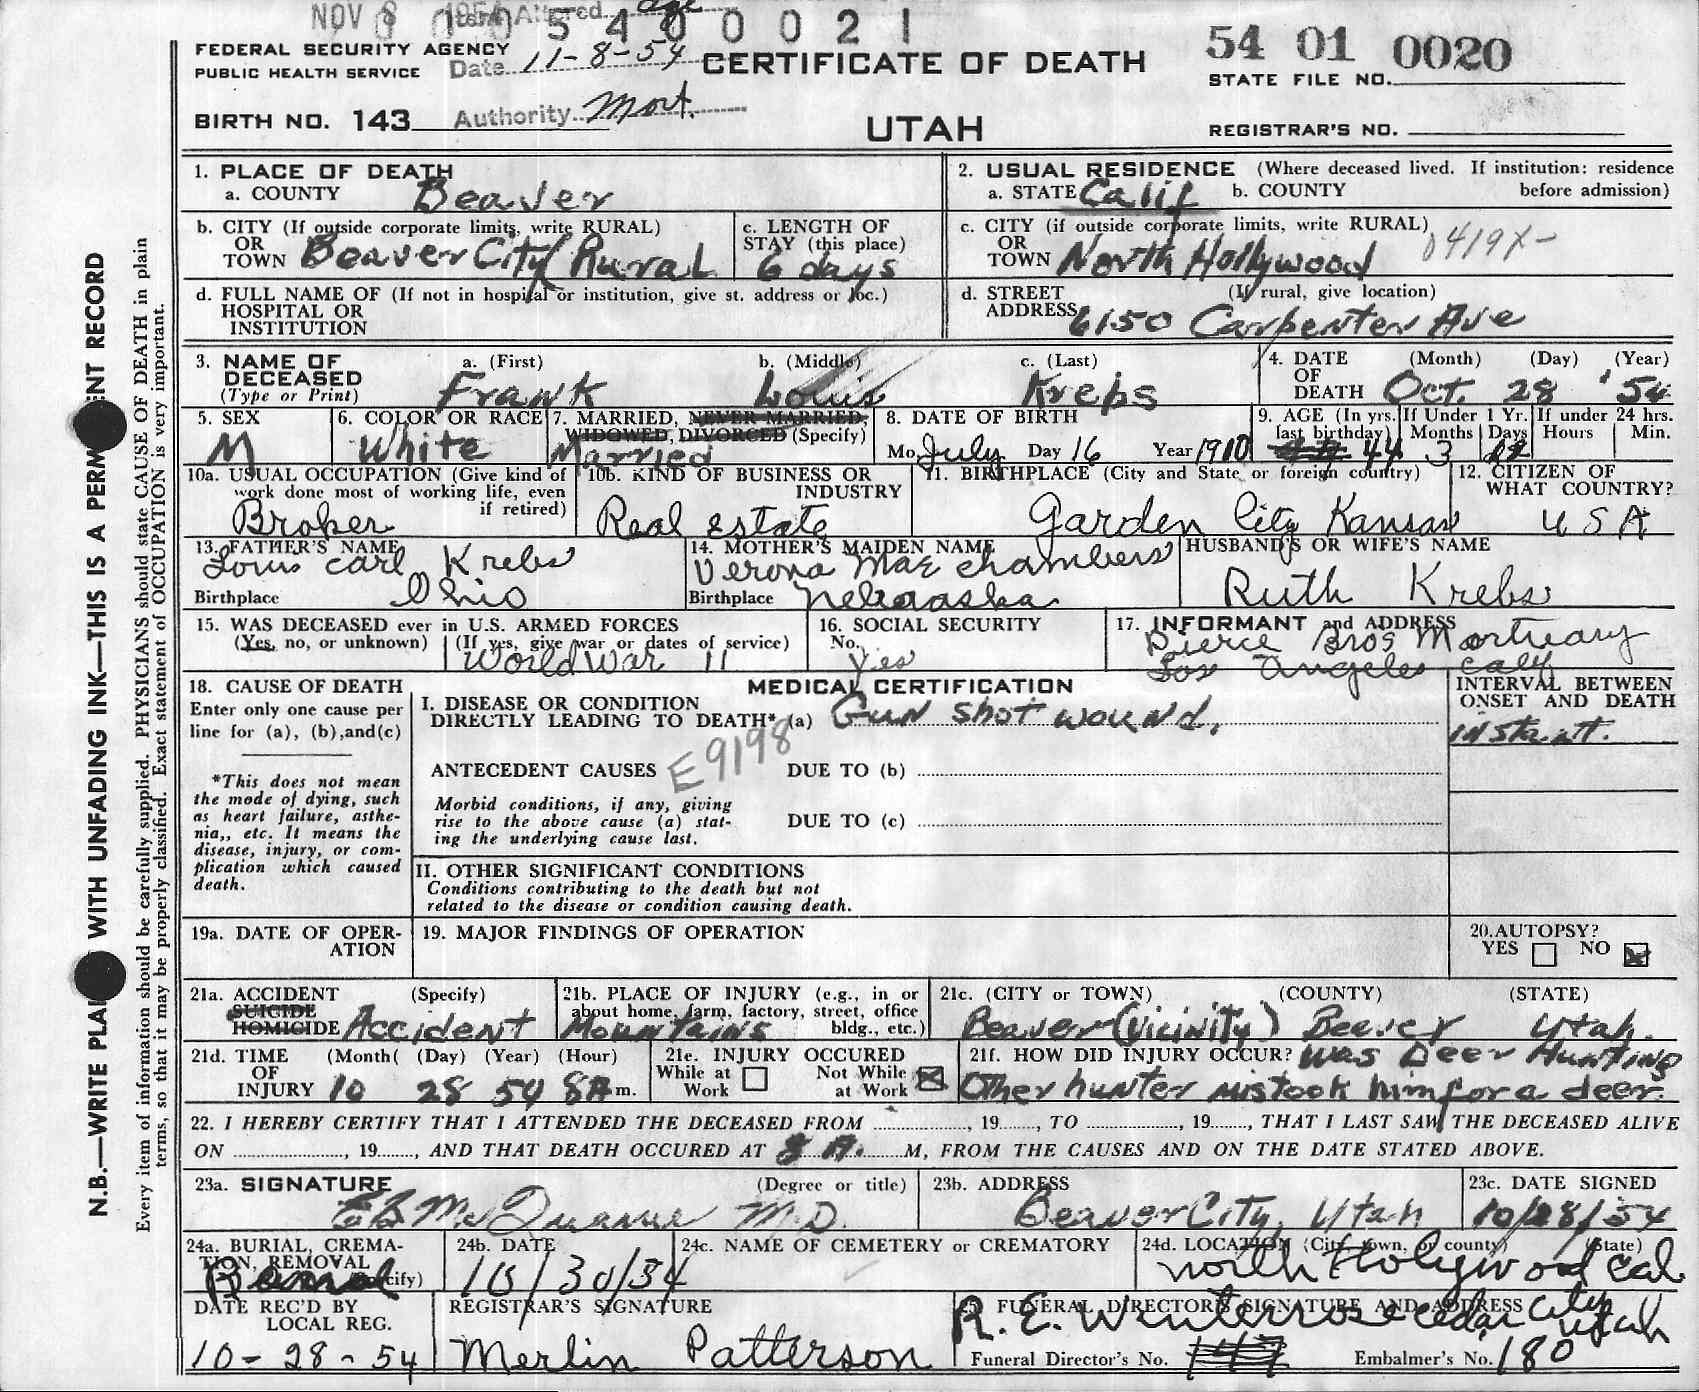 NOV 8 1954 Item Altered age
0 0 5 4 0 0 0 2 1
FEDERAL SECURITY AGENCY
PUBLIC HEALTH SERVICE
Date 11-8-54
CERTIFICATE OF DEATH
54 01 0020
STATE FILE NO.
BIRTH NO. 143
Authority Mort.
UTAH
REGISTRAR'S NO.
1. PLACE OF DEATH
a. COUNTY Beaver
2. USUAL RESIDENCE (Where deceased lived. If institution: residence before admission)
a. STATE Calif b. COUNTY
b. CITY (If outside corporate limits, write RURAL)
OR TOWN Beaver City Rural
c. LENGTH OF STAY (this place)
6 days
c. CITY (if outside corporate limits, write RURAL)
OR TOWN North Hollywood 0419X-
d. FULL NAME OF (If not in hospital or institution, give st. address or loc.)
HOSPITAL OR
INSTITUTION
d. STREET (If rural, give location)
ADDRESS 6150 Carpenter Ave
3. NAME OF DECEASED
(Type or Print)
a. (First) b. (Middle) c. (Last)
Frank Louis Kreps
4. DATE OF DEATH (Month) (Day) (Year)
Oct. 28 '54
5. SEX
M
6. COLOR OR RACE
White
7. MARRIED, NEVER MARRIED, WIDOWED, DIVORCED (Specify)
Married
8. DATE OF BIRTH
Mo. July Day 16 Year 1910
9. AGE (In yrs. last birthday) 44
If Under 1 Yr. Months 3 Days
If under 24 hrs. Hours Min.
10a. USUAL OCCUPATION (Give kind of work done most of working life, even if retired)
Broker
10b. KIND OF BUSINESS OR INDUSTRY
Real Estate
11. BIRTHPLACE (City and State, or foreign country)
Garden City Kansas
12. CITIZEN OF WHAT COUNTRY?
U S A
13. FATHER'S NAME
Louis Carl Krebs
Birthplace Ohio
14. MOTHER'S MAIDEN NAME
Verona Mae Chambers
Birthplace Nebraska
HUSBAND'S OR WIFE'S NAME
Ruth Krebs
15. WAS DECEASED ever in U.S. ARMED FORCES
(Yes, no, or unknown) (If yes, give war or dates of service)
World War II
16. SOCIAL SECURITY
No. Yes
17. INFORMANT and ADDRESS
Pierce Bros Mortuary
Los Angeles Calf
18. CAUSE OF DEATH
Enter only one cause per line for (a), (b),and(c)
*This does not mean the mode of dying, such as heart failure, asthenia,, etc. It means the disease, injury, or complication which caused death.
MEDICAL CERTIFICATION
I. DISEASE OR CONDITION
DIRECTLY LEADING TO DEATH* (a) Gun shot wound.
E9198
ANTECEDENT CAUSES DUE TO (b)
Morbid conditions, if any, giving rise to the above cause (a) stating the underlying cause last.
DUE TO (c)
II. OTHER SIGNIFICANT CONDITIONS
Conditions contributing to the death but not related to the disease or condition causing death.
INTERVAL BETWEEN ONSET AND DEATH
instantt.
19a. DATE OF OPERATION
19. MAJOR FINDINGS OF OPERATION
20.AUTOPSY?
YES NO
21a. ACCIDENT (Specify)
SUICIDE
HOMICIDE Accident
21b. PLACE OF INJURY (e.g., in or about home, farm, factory, street, office bldg., etc.)
Mountains
21c. (CITY or TOWN) (COUNTY) (STATE)
Beaver (Vicinity) Beaver Utah.
21d. TIME OF INJURY (Month( (Day) (Year) (Hour)
10 28 54 8A m.
21e. INJURY OCCURED
While at Work Not While at Work
21f. HOW DID INJURY OCCUR? Was Deer Hunting
Other hunter mistook him for a deer.
22. I HEREBY CERTIFY THAT I ATTENDED THE DECEASED FROM , 19 , TO , 19 , THAT I LAST SAW THE DECEASED ALIVE
ON , 19 , AND THAT DEATH OCCURED AT 8 A. M, FROM THE CAUSES AND ON THE DATE STATED ABOVE.
23a. SIGNATURE (Degree or title)
M.D.
23b. ADDRESS
Beaver City, Utah
23c. DATE SIGNED
10/28/54
24a. BURIAL, CREMATION, REMOVAL (Specify)
24b. DATE
10/30/54
24c. NAME OF CEMETERY or CREMATORY
24d. LOCATION (City, town, or county) (State)
North Holywood Cal
DATE REC'D BY LOCAL REG.
10-28-54
REGISTRAR'S SIGNATURE
Merlin Patterson
25. FUNERAL DIRECTOR'S SIGNATURE AND ADDRESS
R. E. Winterrose Cedar City Utah
Funeral Director's No. 147 Embalmer's No. 180
N.B.—WRITE PLAI WITH UNFADING INK—THIS IS A PERM ENT RECORD
Every item of information should be carefully supplied. PHYSICIANS should state CAUSE OF DEATH in plain
terms, so that it may be properly classified. Exact statement of OCCUPATION is very important.